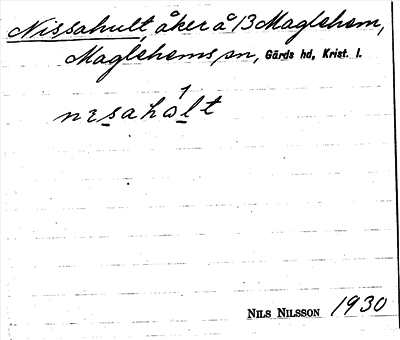 Nissahult, åker å 13 Maglehem,
Maglehems sn, Gärds hd, Krist. l.
nɛsahålt
NILS NILSSON 1930